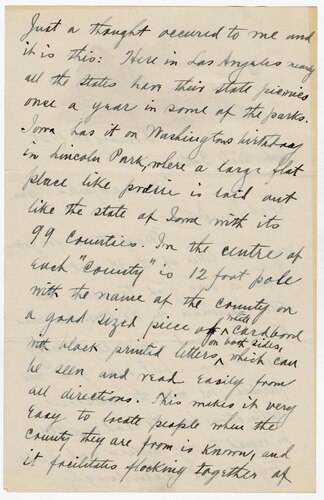 Just a thought occured to me and
it is this: Here in Los Angeles nearly
all the states have their state picnics
once a year in some of the parks.
Iowa has it on Washingtons birthday
in Lincoln Park, where a large flat
place like prarre is laid out
like the state of Iowa with its
99 Counties. In the centre of
each "County" is 12 foot pole
with the name of the county on
a good sized piece of white cardboard
with black printed letters on both sides, which can
be seen and read easily from
all directions. This makes it very
easy to locate people when the
county they are from is known, and
it facilitates flocking together of